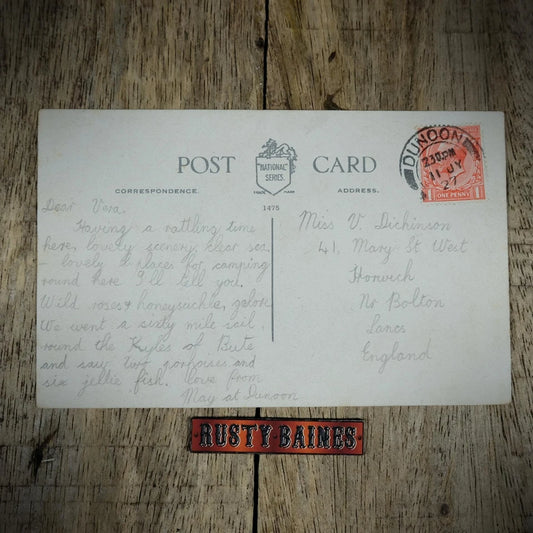 POST CARD
"NATIONAL"
SERIES.
TRADE MARK
CORRESPONDENCE.
ADDRESS.
1475
DUNOON
2 30 PM
11 JY
27
1 1
ONE PENNY
Dear Vera.
Having a rattling time
here, lovely scenery, clear sea,
- lovely places for camping
round here I'll tell you.
Wild roses & honeysuckle, galore
We went a sixty mile sail,
round the Kyles of Bute
and saw two porpoises and
six jellie fish. love from
May at Dunoon
Miss V. Dickinson
41, Mary St West
Horwich
Nr Bolton
Lancs
England
RUSTY BAINES